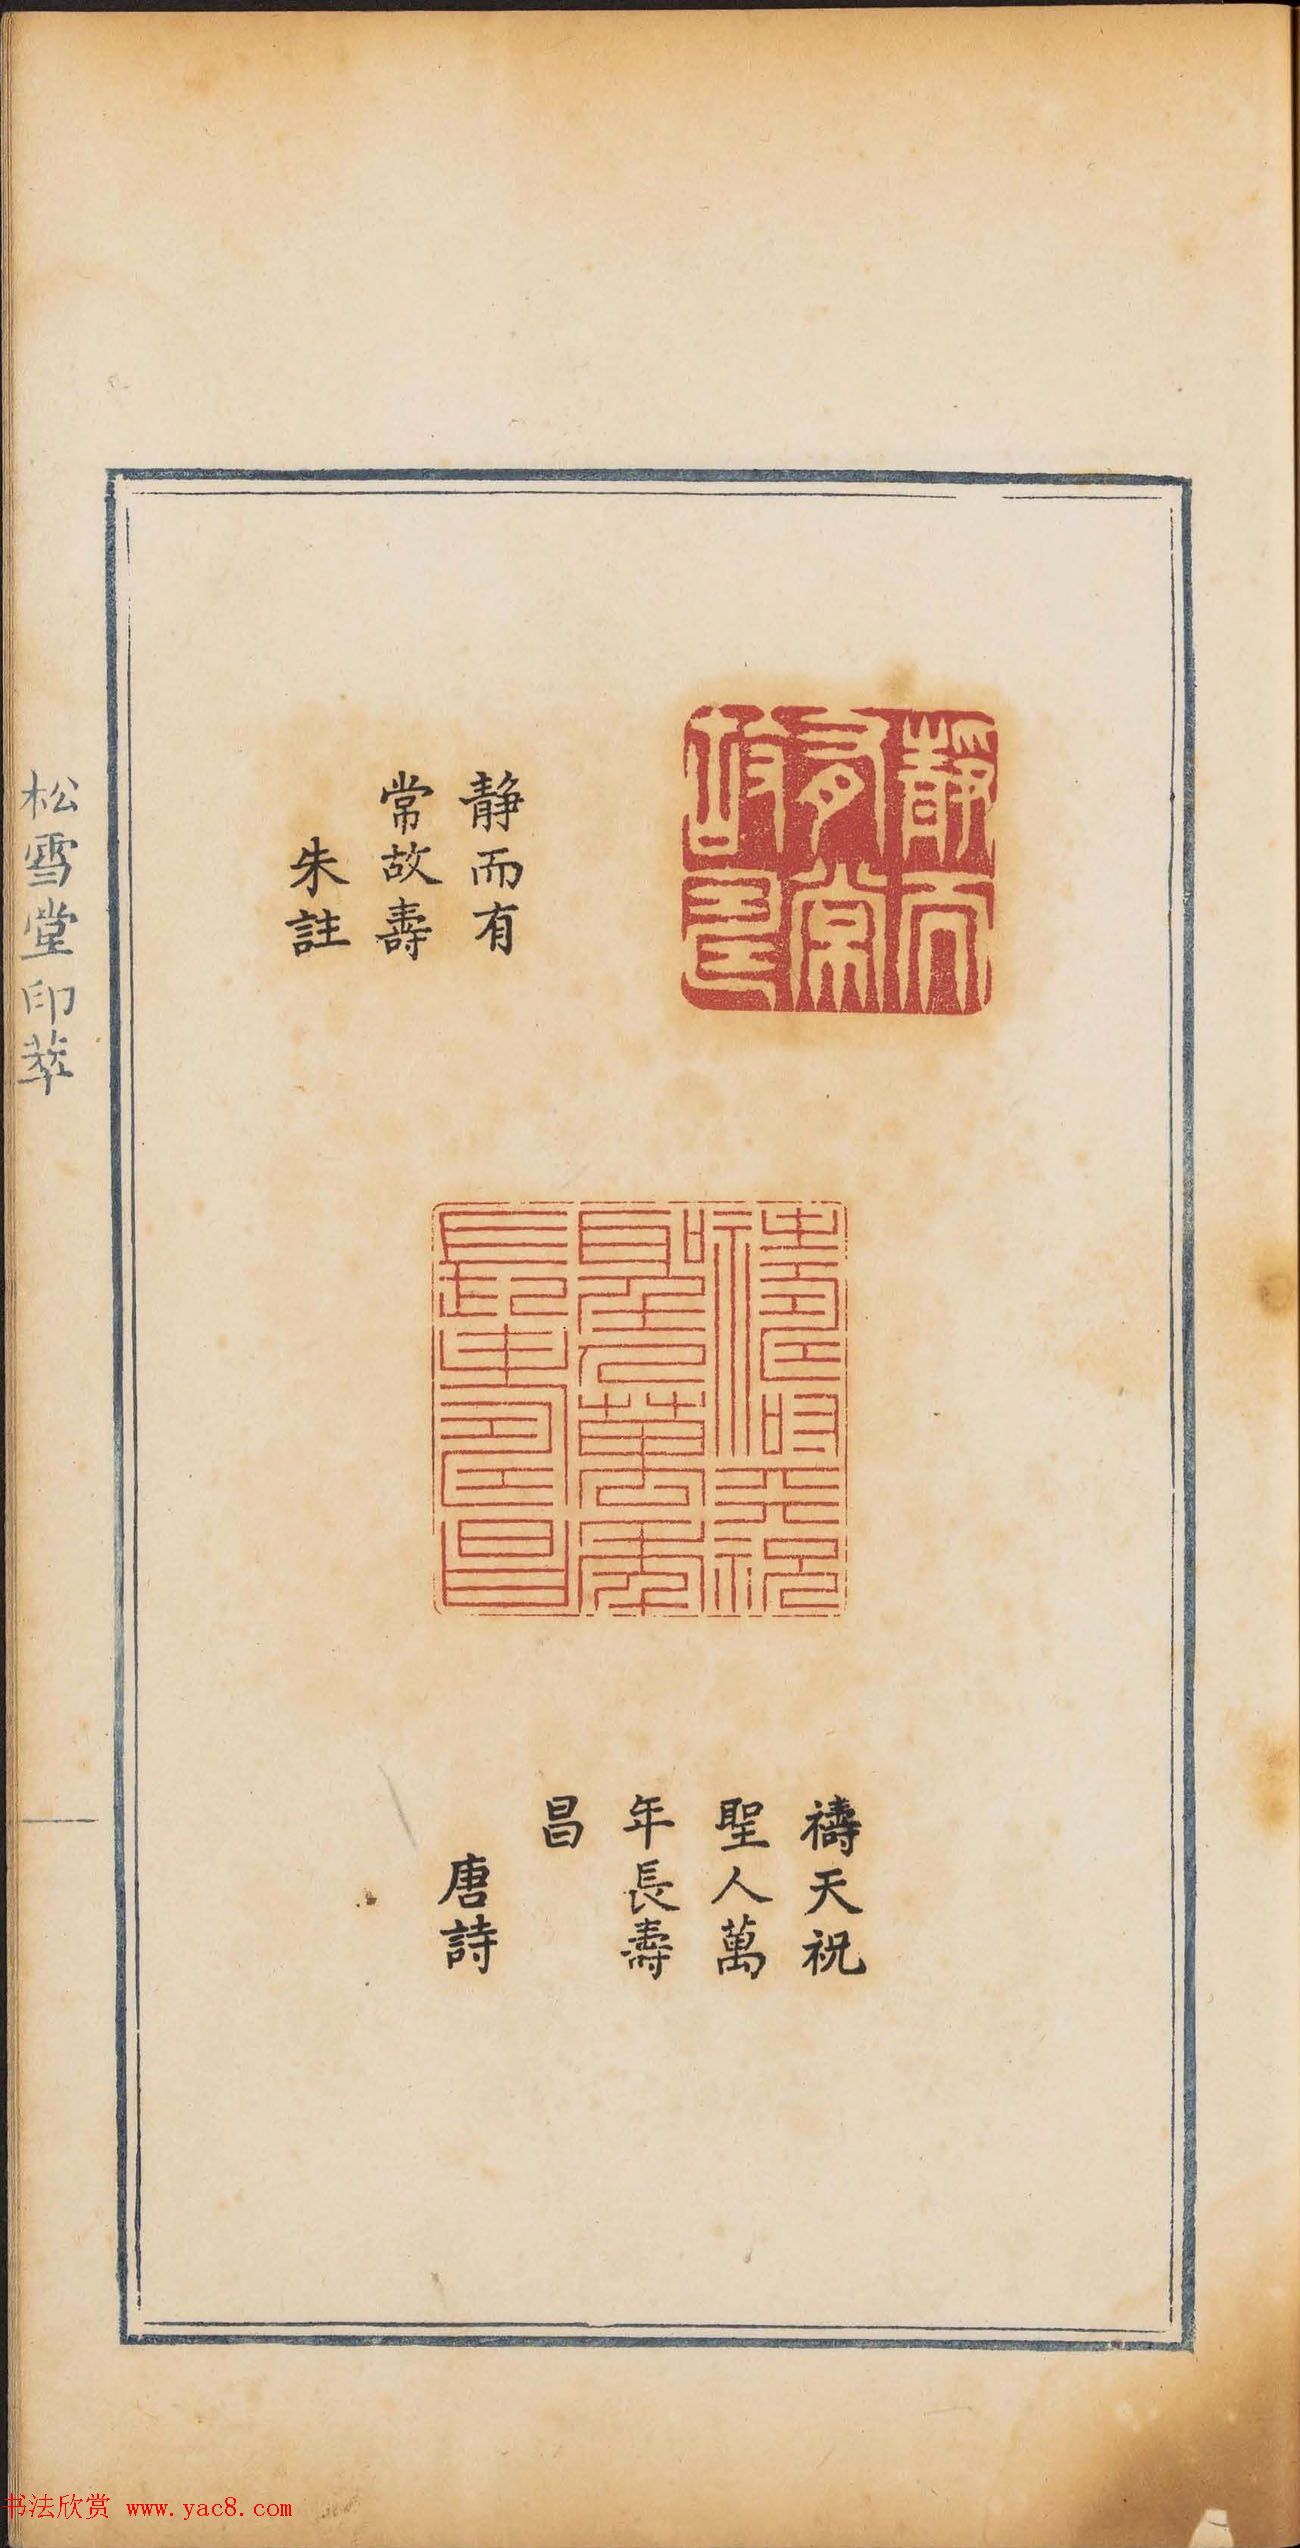 靜而有
常故壽
朱註
靜而
有常
故壽
禱天祝
聖人萬
年長壽
昌
禱天祝
聖人萬年
長壽昌
唐詩
松雪堂印萃
书法欣赏 www.yac8.com